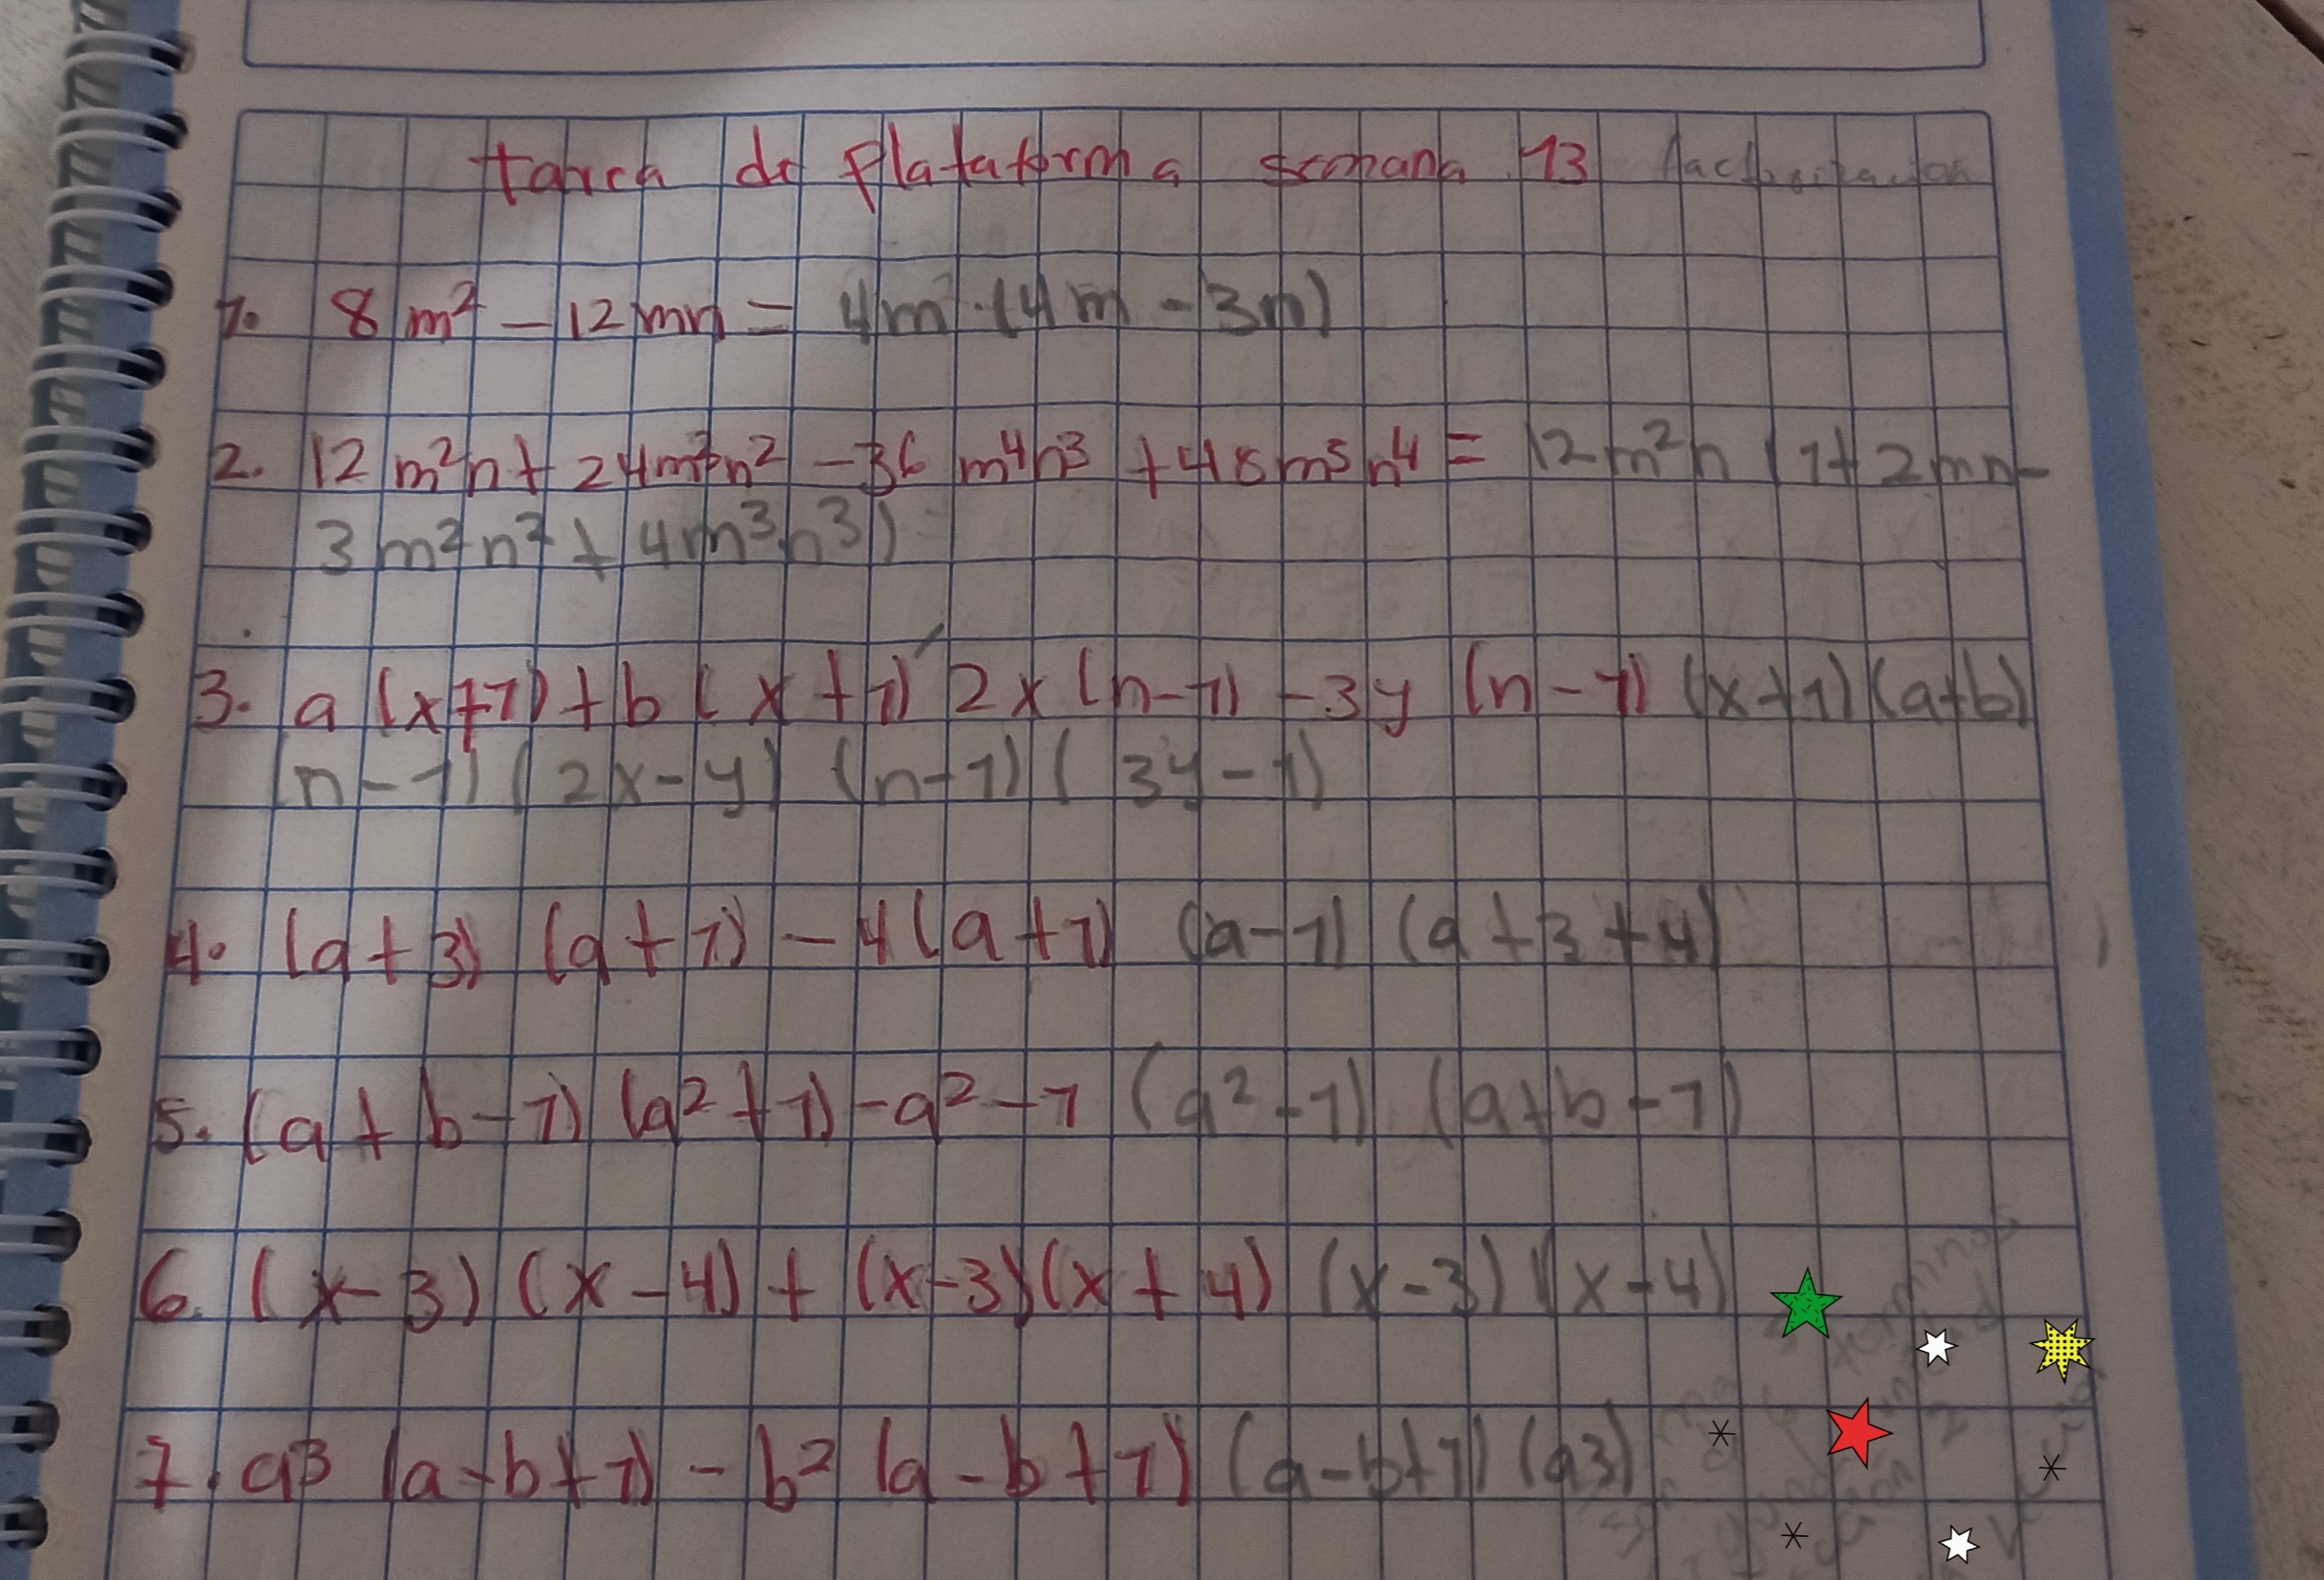 tarea de Plataforma semana 13 factorización
1. 8m² - 12mn = 4m · (4m - 3n)
2. 12m²n + 24m³n² - 36m⁴n³ + 48m⁵n⁴ = 12m²n (1 + 2mn -
3m²n² + 4m³n³)
3. a (x+1) + b (x+1) 2x (n-1) - 3y (n-1) (x+1)(a+b)
(n-1) (2x-y) (n-1) (3y-1)
4. (a+3) (a+1) - 4(a+1) (a-1) (a+3+4)
5. (a+b-1) (a²+1) - a² - 1 (a²-1) (a+b-1)
6. (x-3) (x-4) + (x-3)(x+4) (x-3) (x-4)
7. a³ (a-b+1) - b² (a-b+1) (a-b+1) (a3)